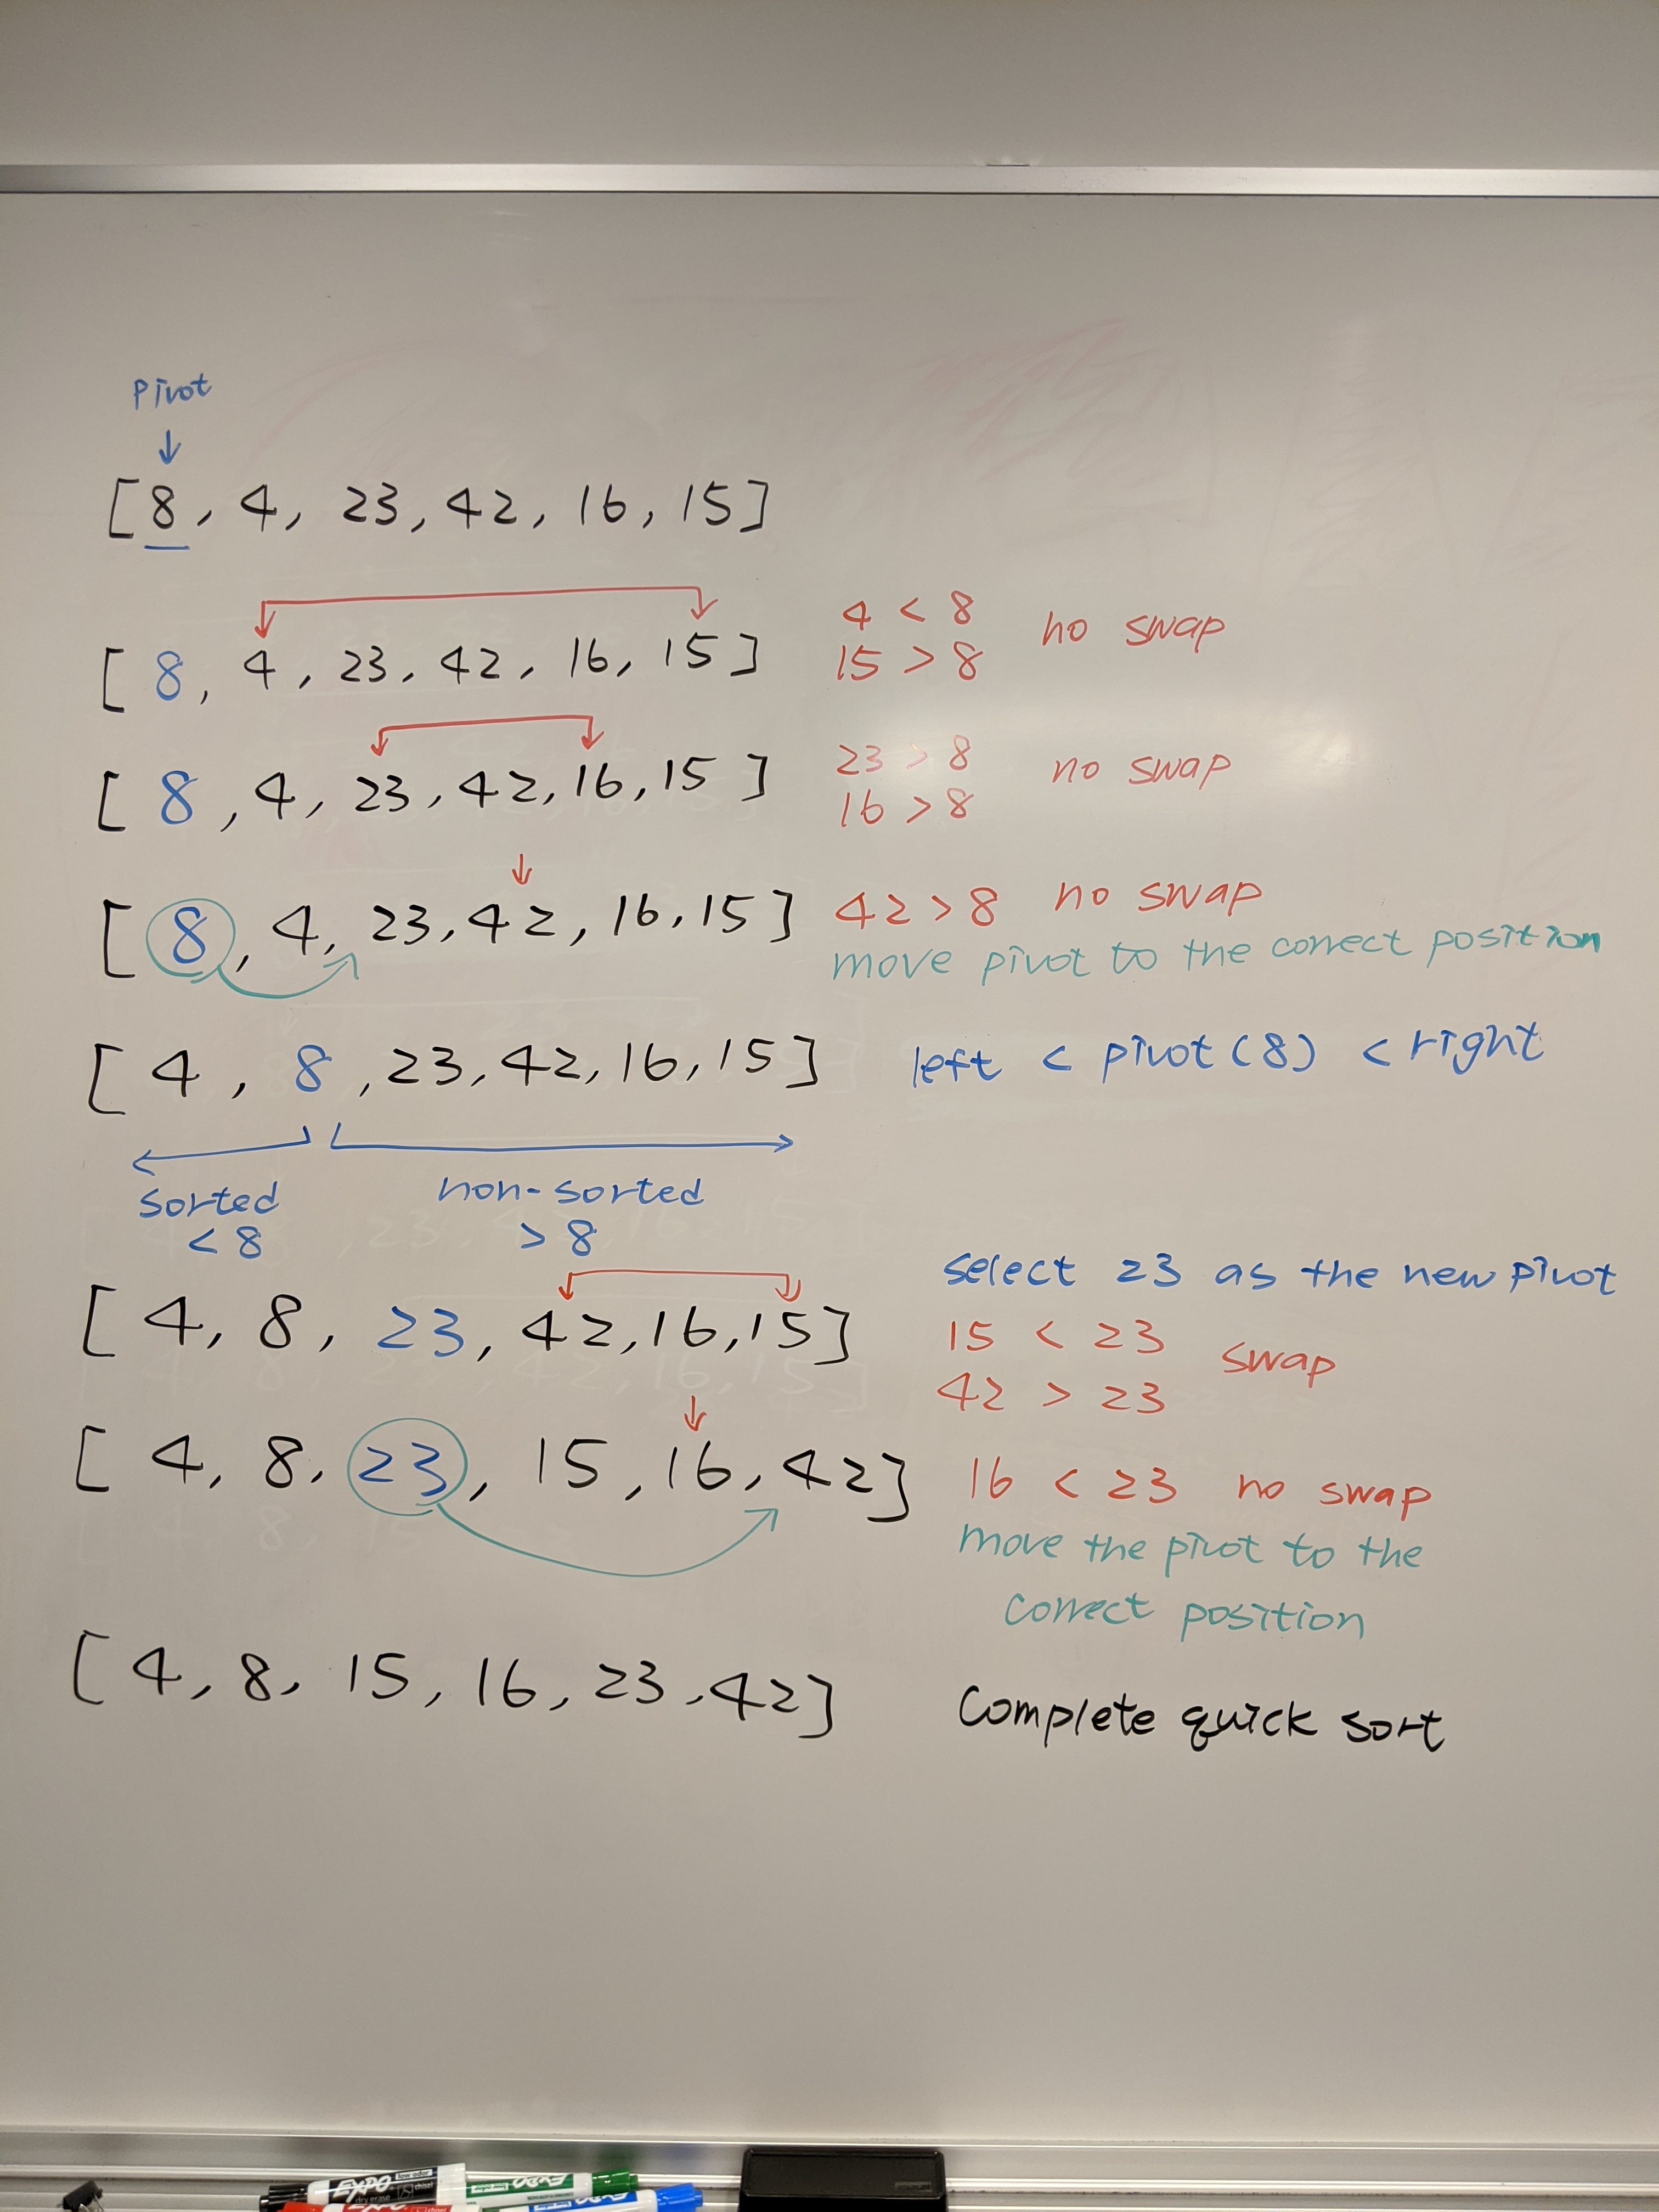 Pivot
[8, 4, 23, 42, 16, 15]
[8, 4, 23, 42, 16, 15]
4 < 8
15 > 8
no swap
[8, 4, 23, 42, 16, 15]
23 > 8
16 > 8
no swap
[8, 4, 23, 42, 16, 15]
42 > 8 no swap
move pivot to the correct position
[4, 8, 23, 42, 16, 15]
left < pivot(8) < right
sorted
< 8
non-sorted
> 8
select 23 as the new pivot
[4, 8, 23, 42, 16, 15]
15 < 23
42 > 23
swap
[4, 8, 23, 15, 16, 42]
16 < 23 no swap
move the pivot to the
correct position
[4, 8, 15, 16, 23, 42]
Complete quick sort
EXPO
low odor
dry erase
chisel
EXPO